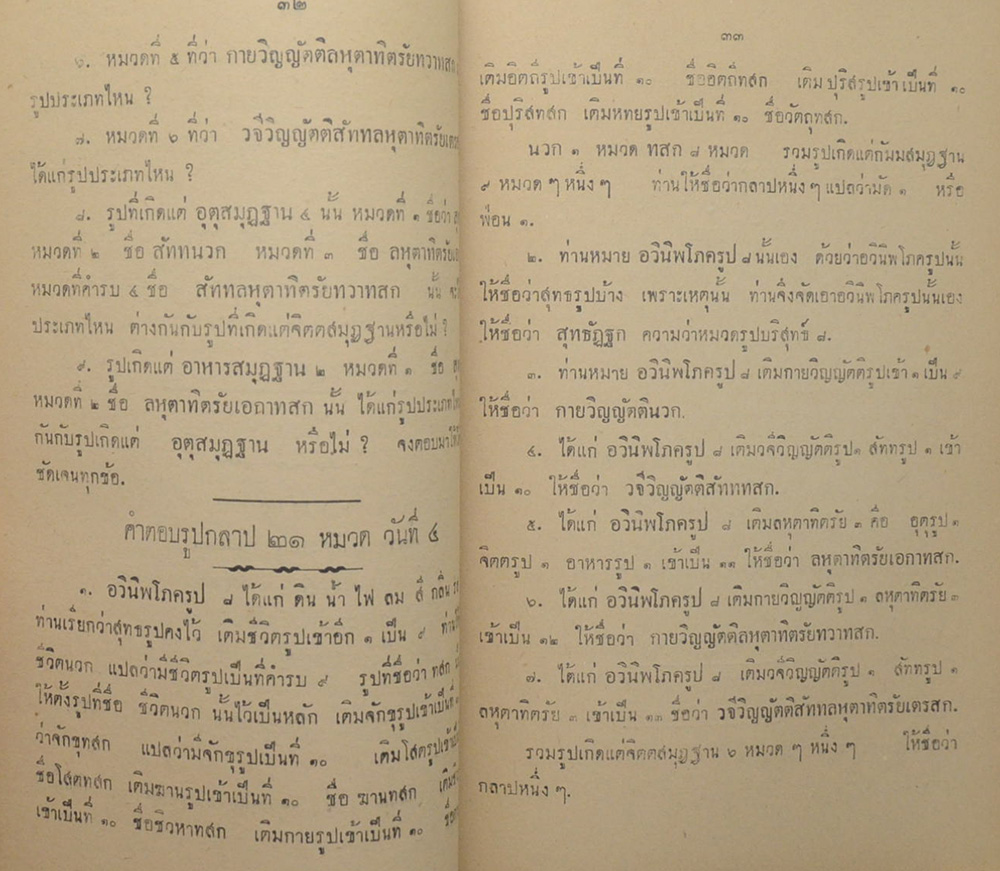 ๓๒
๖. หมวดที่ ๕ ที่ว่า กายวิญญัตติลหุตาทิตรัยทวาทสก
รูปประเภทไหน ?
๗. หมวดที่ ๖ ที่ว่า วจีวิญญัตติสัททลหุตาทิตรัยเตรส
ได้แก่รูปประเภทไหน ?
๘. รูปที่เกิดแต่ อุตุสมุฏฐาน ๔ นั้น หมวดที่ ๑ ชื่อว่า
หมวดที่ ๒ ชื่อ สัททนวก หมวดที่ ๓ ชื่อ ลหุตาทิตรัยเอ
หมวดที่คำรบ ๔ ชื่อ สัททลหุตาทิตรัยทวาทสก นั้น
ประเภทไหน ต่างกันกับรูปที่เกิดแต่จิตตสมุฏฐานหรือไม่ ?
๙. รูปเกิดแต่ อาหารสมุฏฐาน ๒ หมวดที่ ๑ ชื่อ
หมวดที่ ๒ ชื่อ ลหุตาทิตรัยเอกาทสก นั้น ได้แก่รูปประเภท
กันกับรูปเกิดแต่ อุตุสมุฏฐาน หรือไม่ ? จงตอบมาให้
ชัดเจนทุกข้อ.
คำตอบรูปกลาป ๒๑ หมวด วันที่ ๔
๑. อวินิพโภครูป ๘ ได้แก่ ดิน น้ำ ไฟ ลม สี กลิ่น
ท่านเรียกว่าสุทธรูปคงไว้ เติมชีวิตรูปเข้าอีก ๑ เป็น ๙
ชีวิตนวก แปลว่ามีชีวิตรูปเป็นที่คำรบ ๙ รูปที่ชื่อว่า ทสก
ให้ตั้งรูปที่ชื่อ ชีวิตนวก นั้นไว้เป็นหลัก เติมจักขุรูปเข้าเป็นที่
ว่าจักขุทสก แปลว่ามีจักขุรูปเป็นที่ ๑๐ เติมโสตรูปเข้า
ชื่อโสตทสก เติมฆานรูปเข้าเป็นที่ ๑๐ ชื่อ ฆานทสก เติม
เข้าเป็นที่ ๑๐ ชื่อชิวหาทสก เติมกายรูปเข้าเป็นที่ ๑๐ ชื่อ
๓๓
เติมอิตถีรูปเข้าเป็นที่ ๑๐ ชื่ออิตถีทสก เติม ปุริสรูปเข้าเป็นที่ ๑๐
ชื่อปุริสทสก เติมหทยรูปเข้าเป็นที่ ๑๐ ชื่อวัตถุทสก.
นวก ๑ หมวด ทสก ๘ หมวด รวมรูปเกิดแต่กัมมสมุฏฐาน
๙ หมวด ๆ หนึ่ง ๆ ท่านให้ชื่อว่ากลาปหนึ่ง ๆ แปลว่ามัด ๑ หรือ
ฟ่อน ๑.
๒. ท่านหมาย อวินิพโภครูป ๘ นั้นเอง ด้วยว่าอวินิพโภครูปนั้น
ให้ชื่อว่าสุทธรูปบ้าง เพราะเหตุนั้น ท่านจึงจัดเอาอวินิพโภครูปนั้นเอง
ให้ชื่อว่า สุทธัฏฐก ความว่าหมวดรูปบริสุทธ์ ๘.
๓. ท่านหมาย อวินิพโภครูป ๘ เติมกายวิญญัตติรูปเข้า ๑ เป็น ๙
ให้ชื่อว่า กายวิญญัตตินวก.
๔. ได้แก่ อวินิพโภครูป ๘ เติมวจีวิญญัตติรูป ๑ สัททรูป ๑ เข้า
เป็น ๑๐ ให้ชื่อว่า วจีวิญญัตติสัทททสก.
๕. ได้แก่ อวินิพโภครูป ๘ เติมลหุตาทิตรัย ๓ คือ อุตุรูป ๑
จิตตรูป ๑ อาหารรูป ๑ เข้าเป็น ๑๑ ให้ชื่อว่า ลหุตาทิตรัยเอกาทสก.
๖. ได้แก่ อวินิพโภครูป ๘ เติมกายวิญญัตติรูป ๑ ลหุตาทิตรัย ๓
เข้าเป็น ๑๒ ให้ชื่อว่า กายวิญญัตติลหุตาทิตรัยทวาทสก.
๗. ได้แก่ อวินิพโภครูป ๘ เติมวจีวิญญัตติรูป ๑ สัททรูป ๑
ลหุตาทิตรัย ๓ เข้าเป็น ๑๓ ชื่อว่า วจีวิญญัตติสัททลหุตาทิตรัยเตรสก.
รวมรูปเกิดแต่จิตตสมุฏฐาน ๖ หมวด ๆ หนึ่ง ๆ ให้ชื่อว่า
กลาปหนึ่ง ๆ.